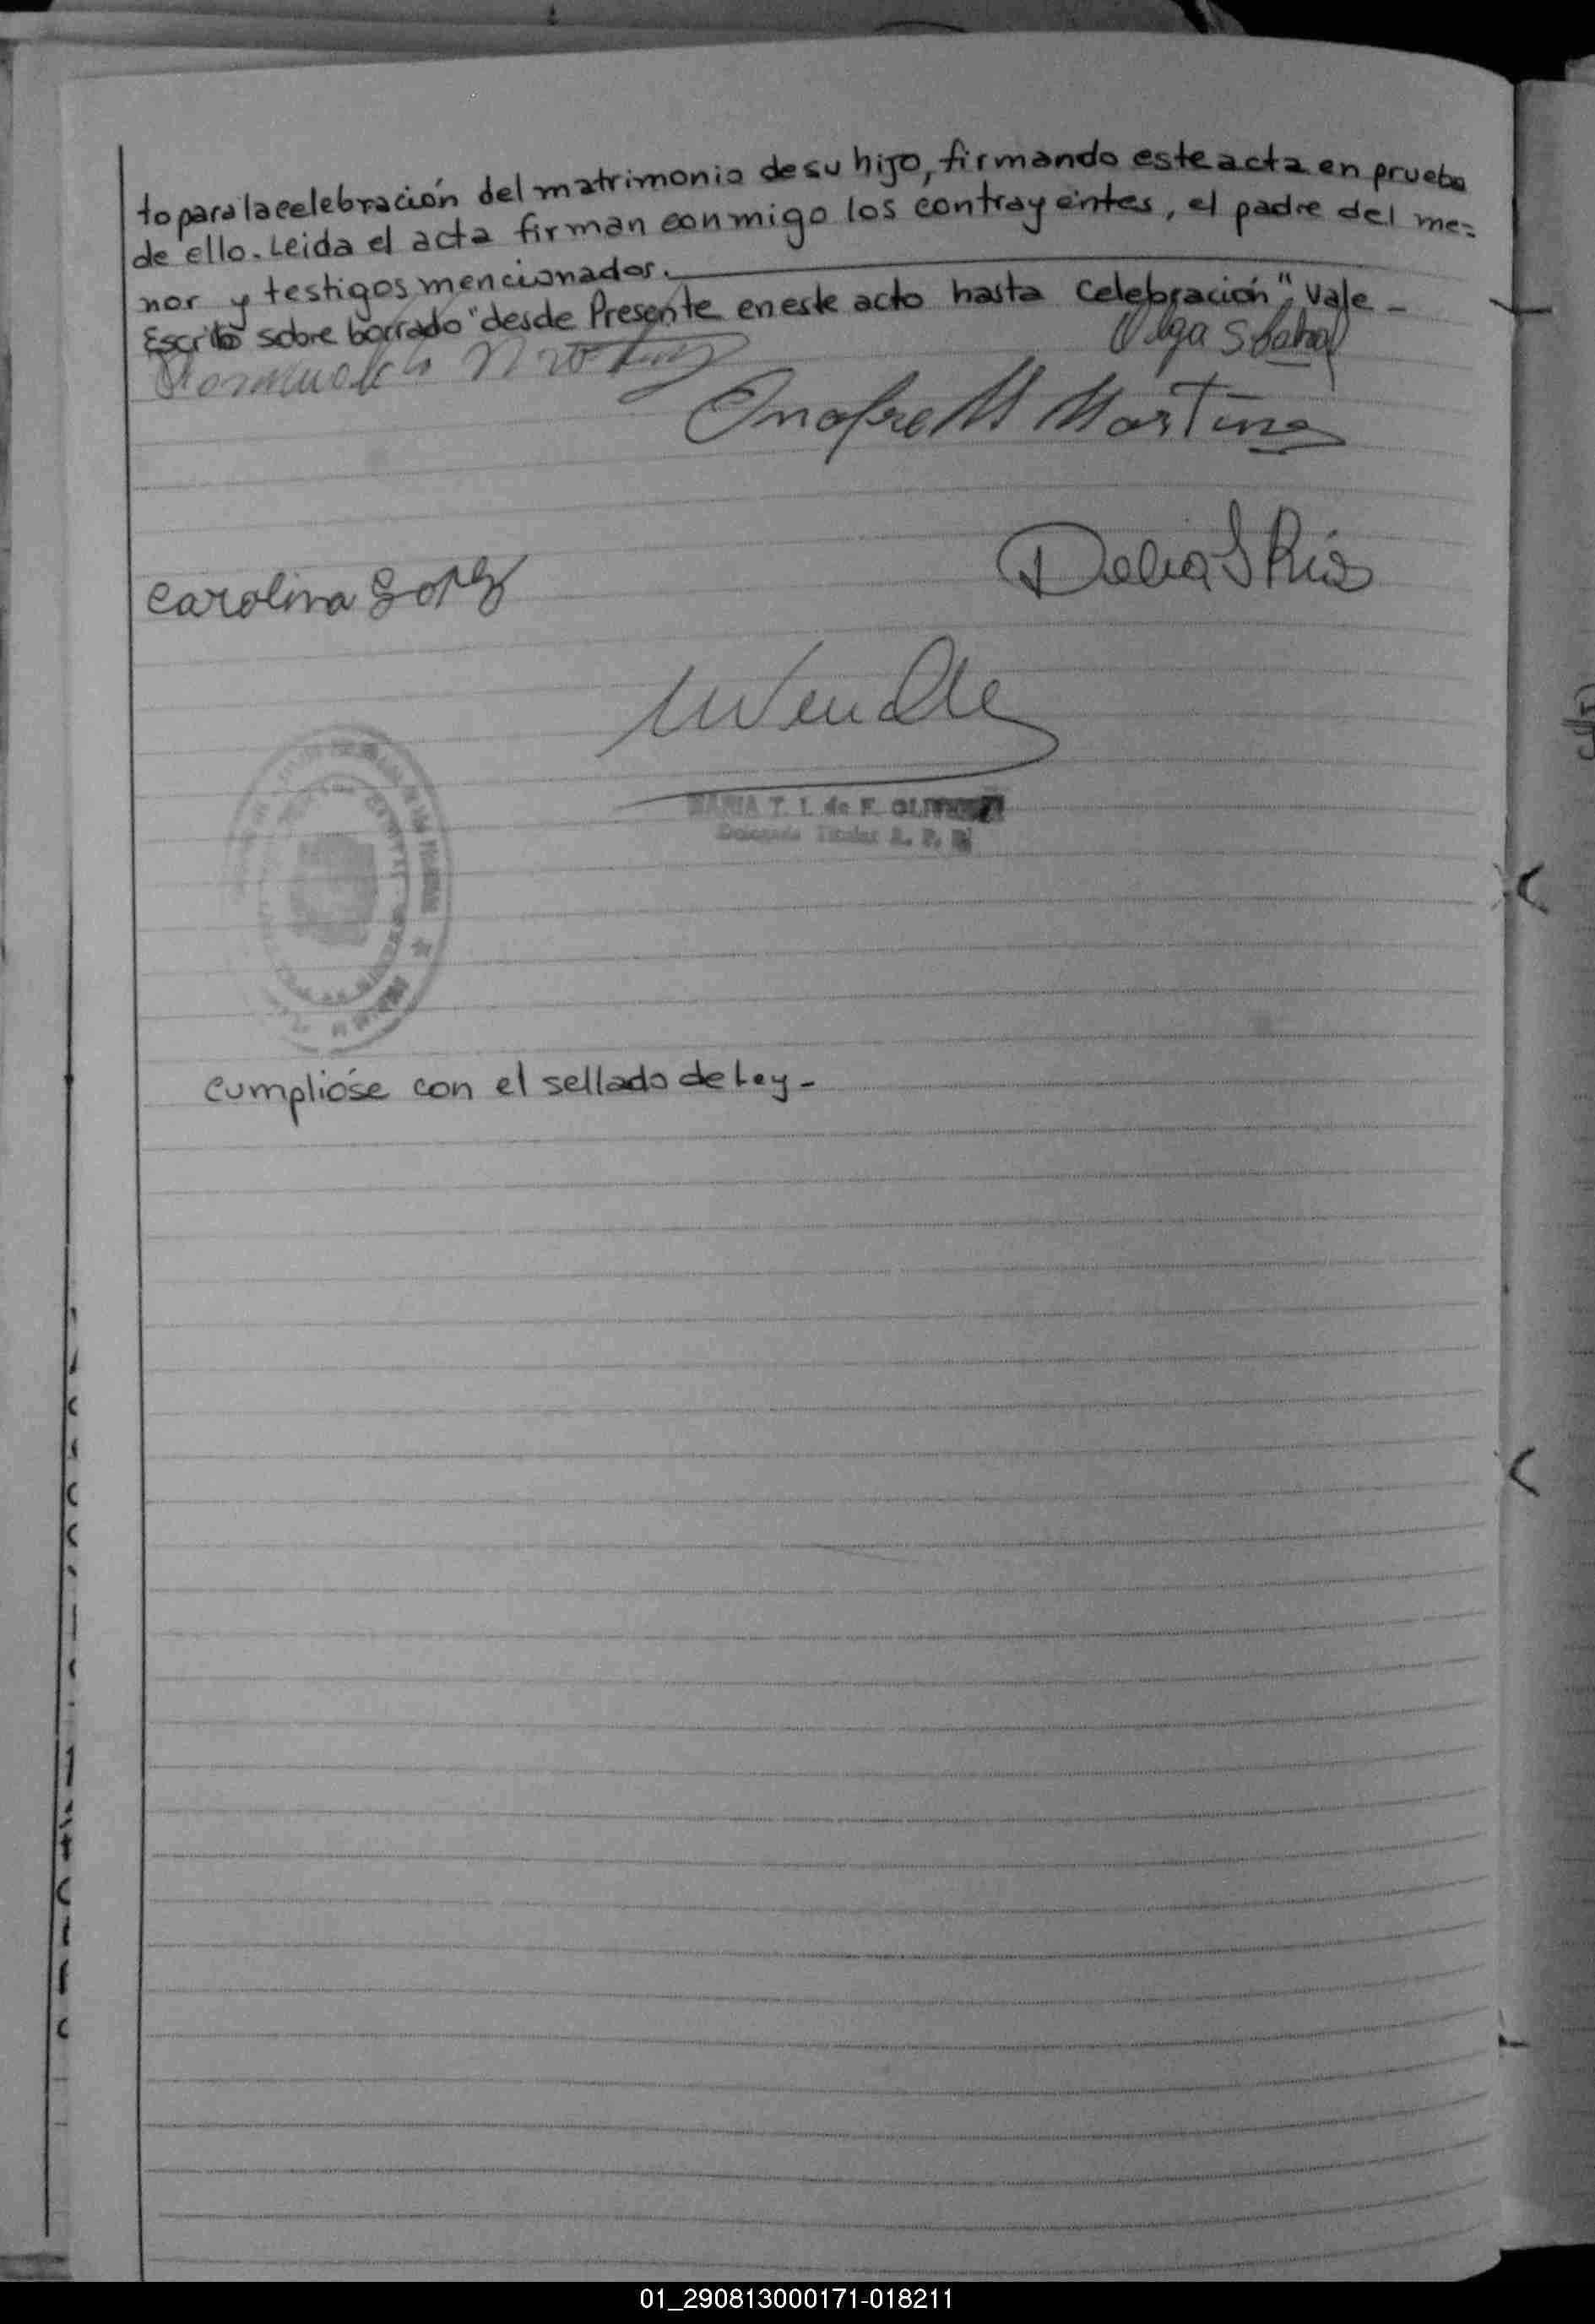 to para la celebración del matrimonio de su hijo, firmando este acta en prueba
de ello. Leida el acta firman conmigo los contrayeintes, el padre del me=
nor y testigos mencionados.
Escrito sobre borrado "desde Presente en este acto hasta Celebración", Vale -
Olga S
Onofre M Martinez
Delia S Rios
Carolina
MARIA T. I. de F.
Delegada Titular R. P.
cumplióse con el sellado de Ley -
01_290813000171-018211